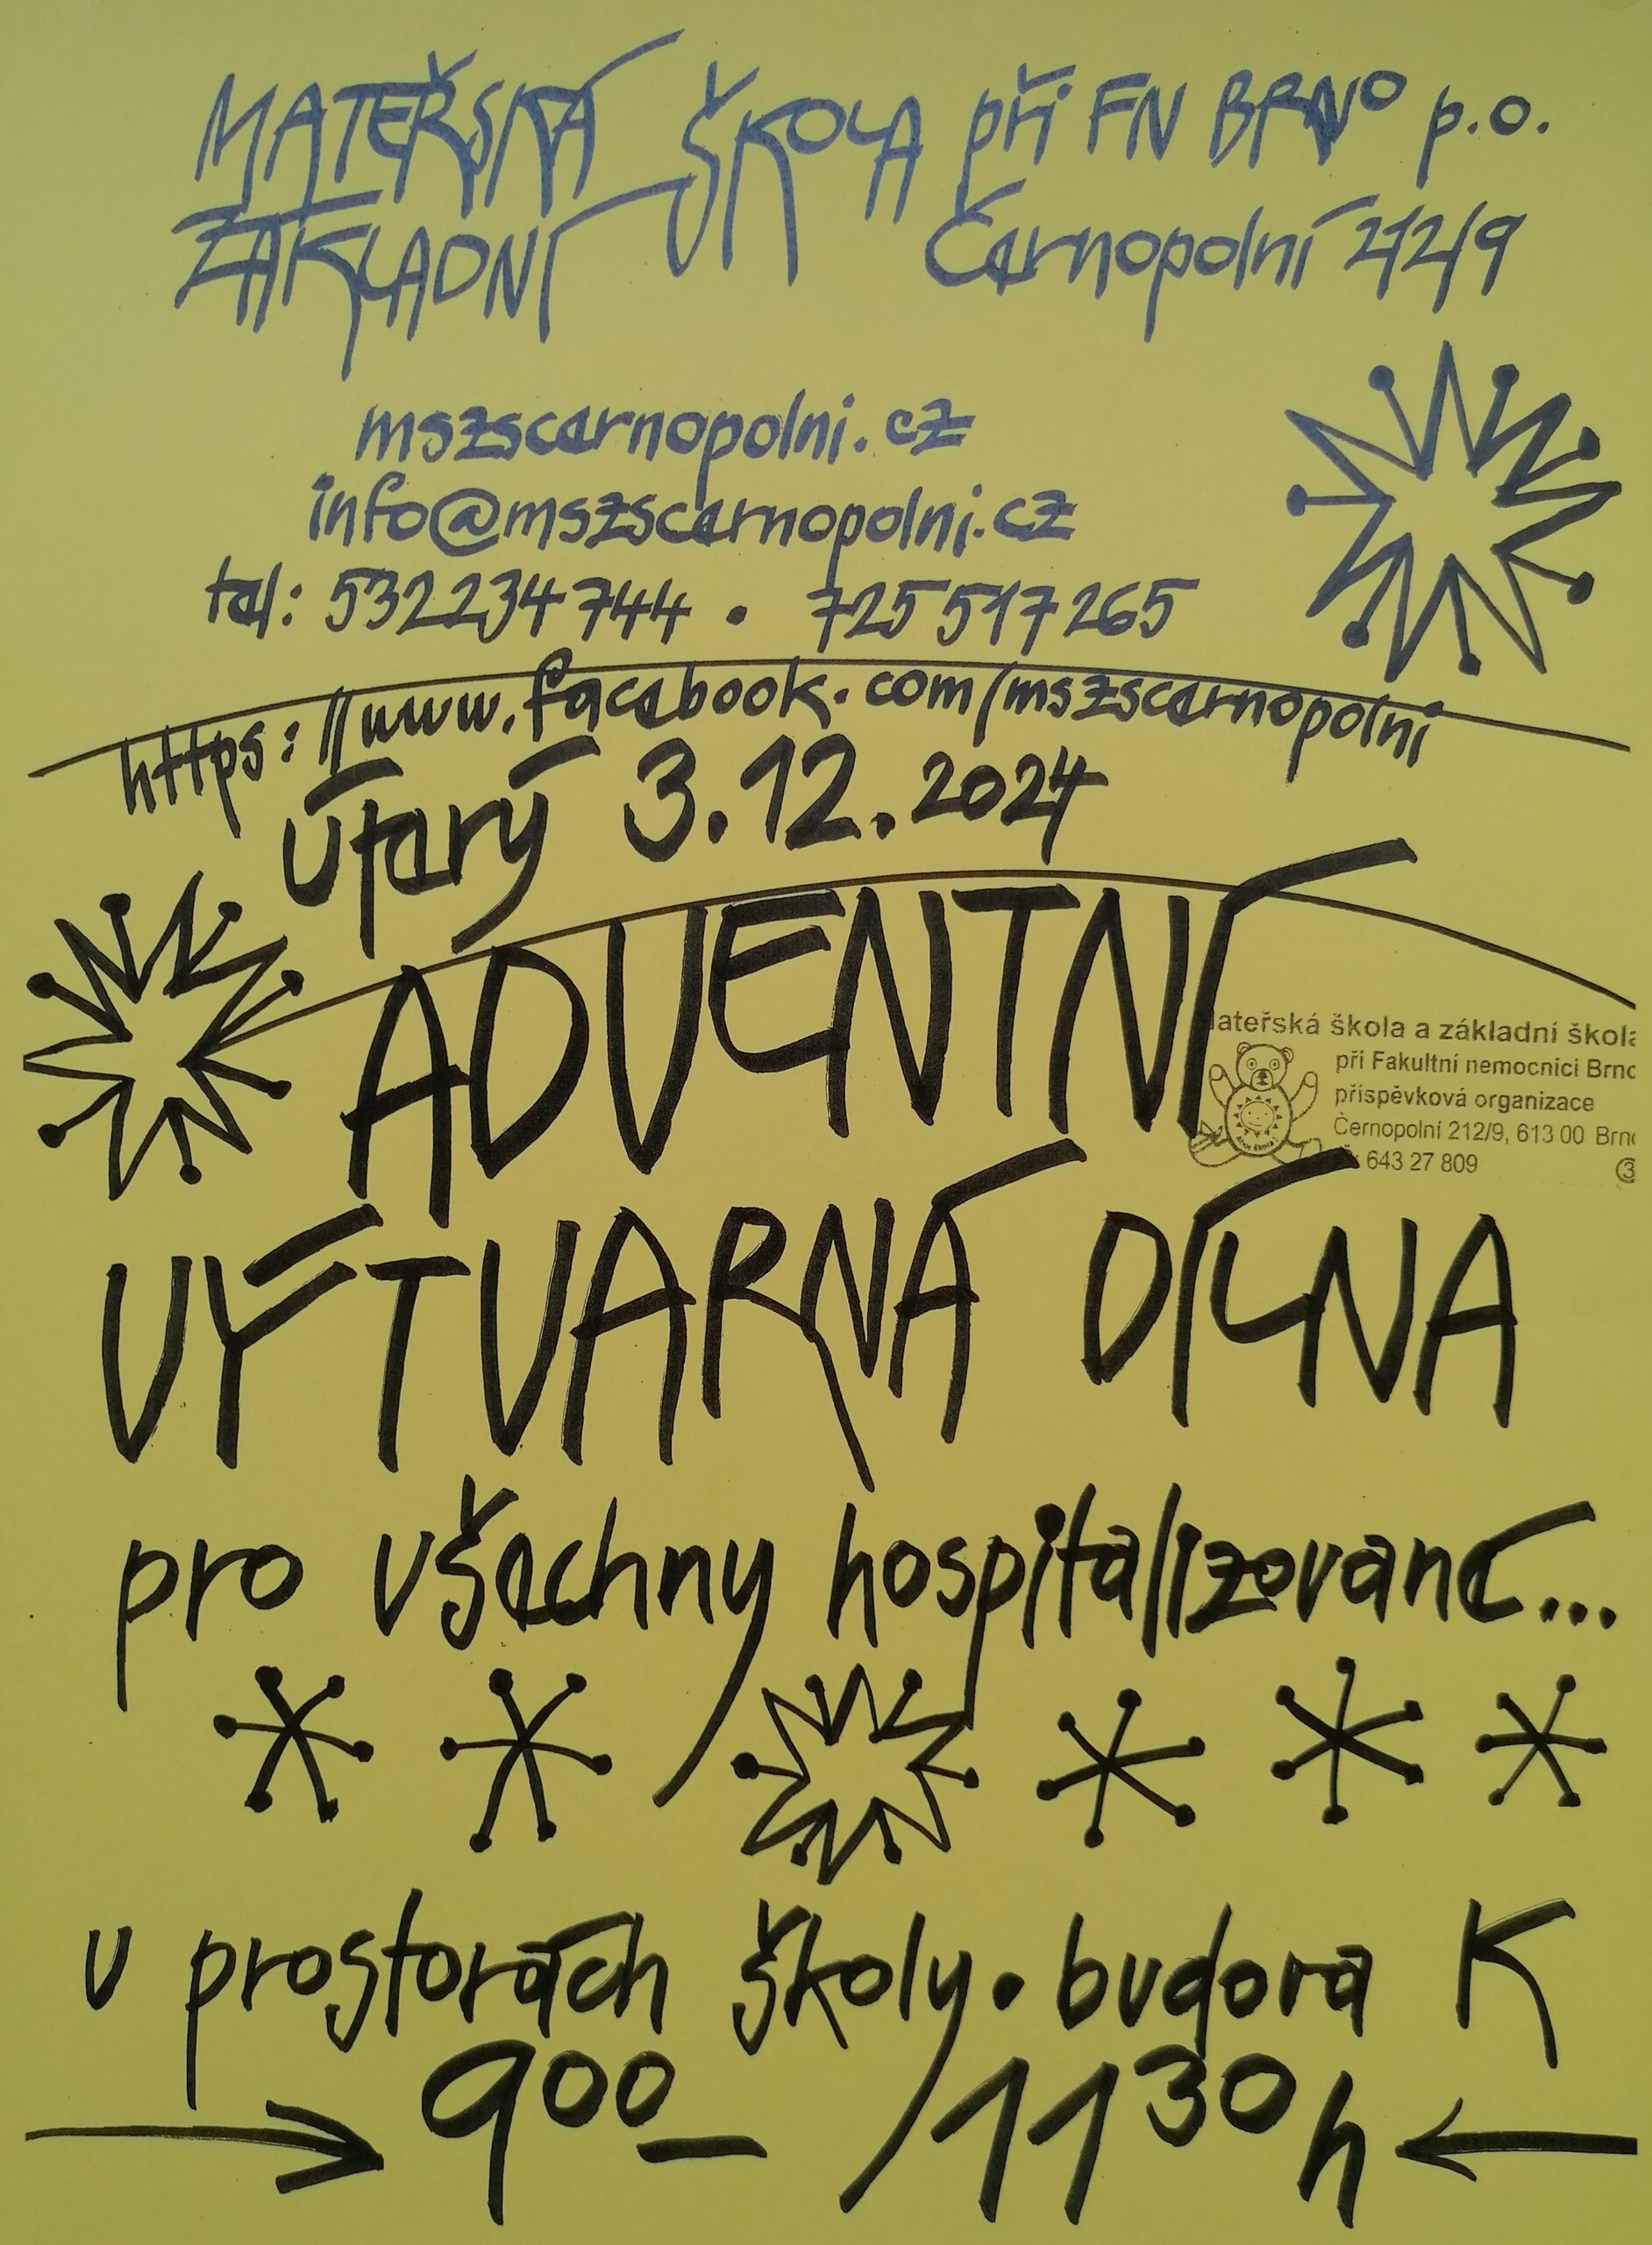 MATEŘSKÁ ŠKOLA při FN BRNO p.o.
ZÁKLADNÍ Černopolní 212/9
mszscernopolni.cz
info@mszscernopolni.cz
tel: 532234744 • 725517265
https://www.facebook.com/mszscernopolni
Úterý 3.12.2024
ADVENTNÍ
ateřská škola a základní škola
při Fakultní nemocnici Brno
příspěvková organizace
Černopolní 212/9, 613 00 Brno
643 27 809
3
VÝTVARNÁ DÍLNA
pro všechny hospitalizované...
v prostorách školy • budova K
9⁰⁰ – 11³⁰ h